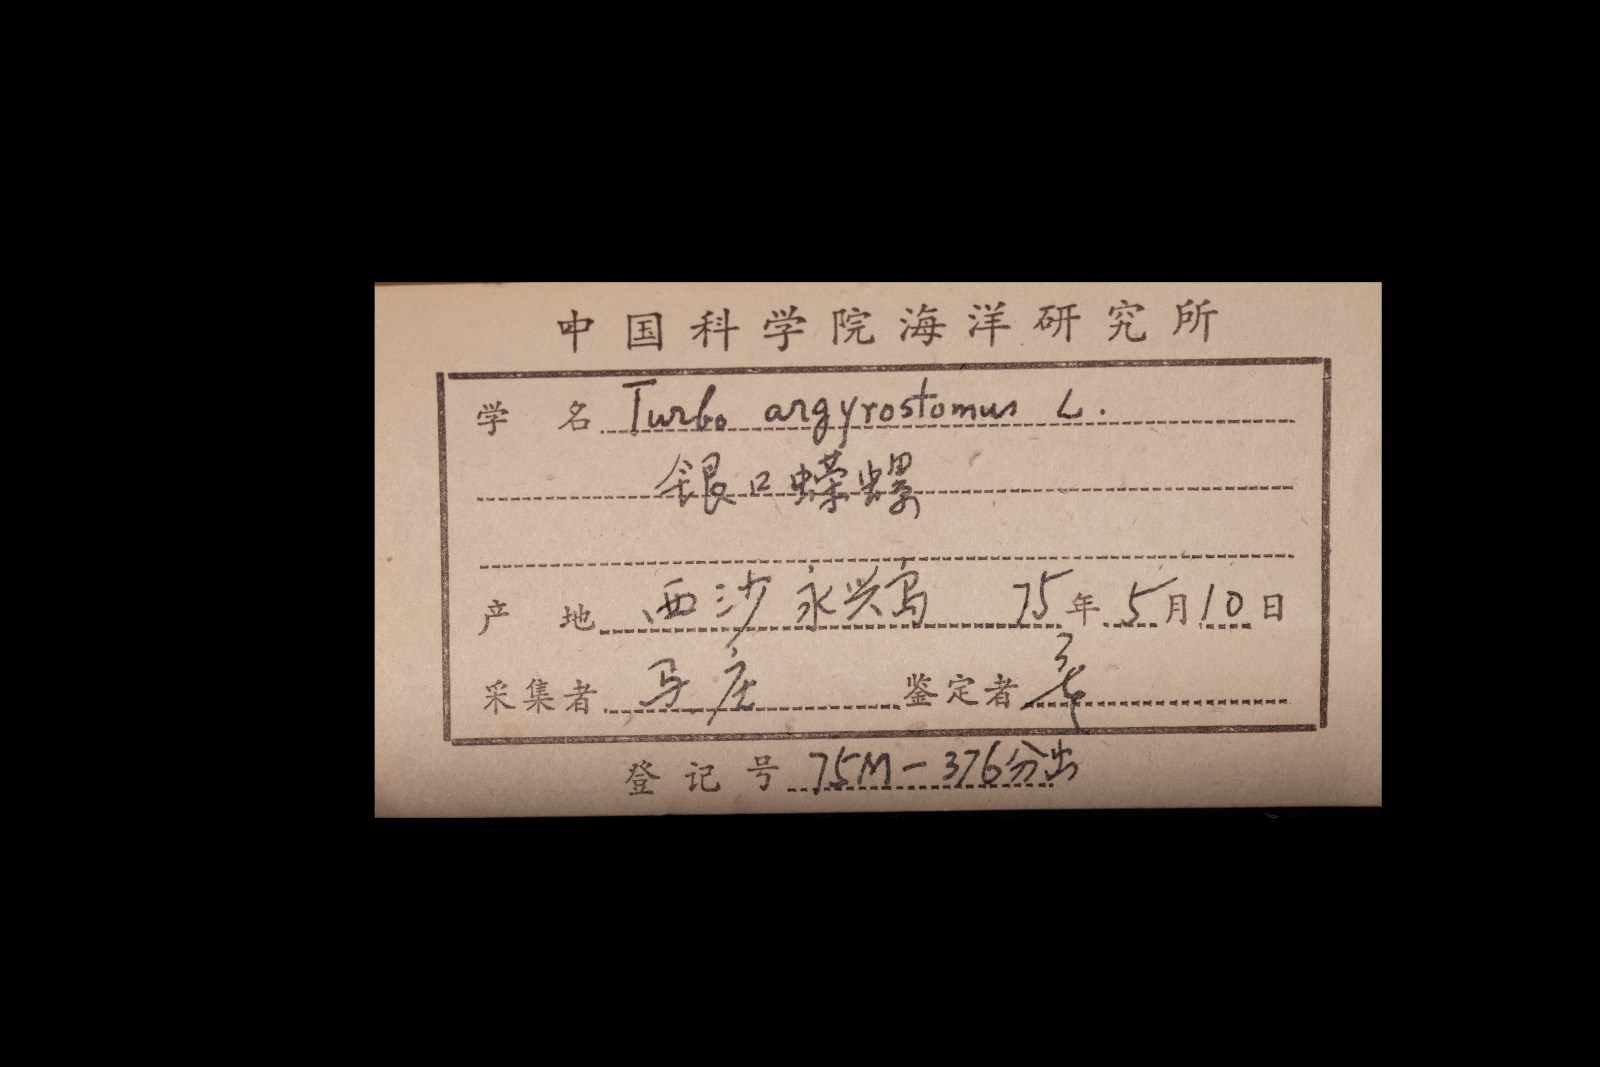 中国科学院海洋研究所
学 名 Turbo argyrostomus L.
银口蝾螺
产 地 西沙永兴岛 75年5月10日
采集者 马庄 鉴定者
登记号 75M-376分出